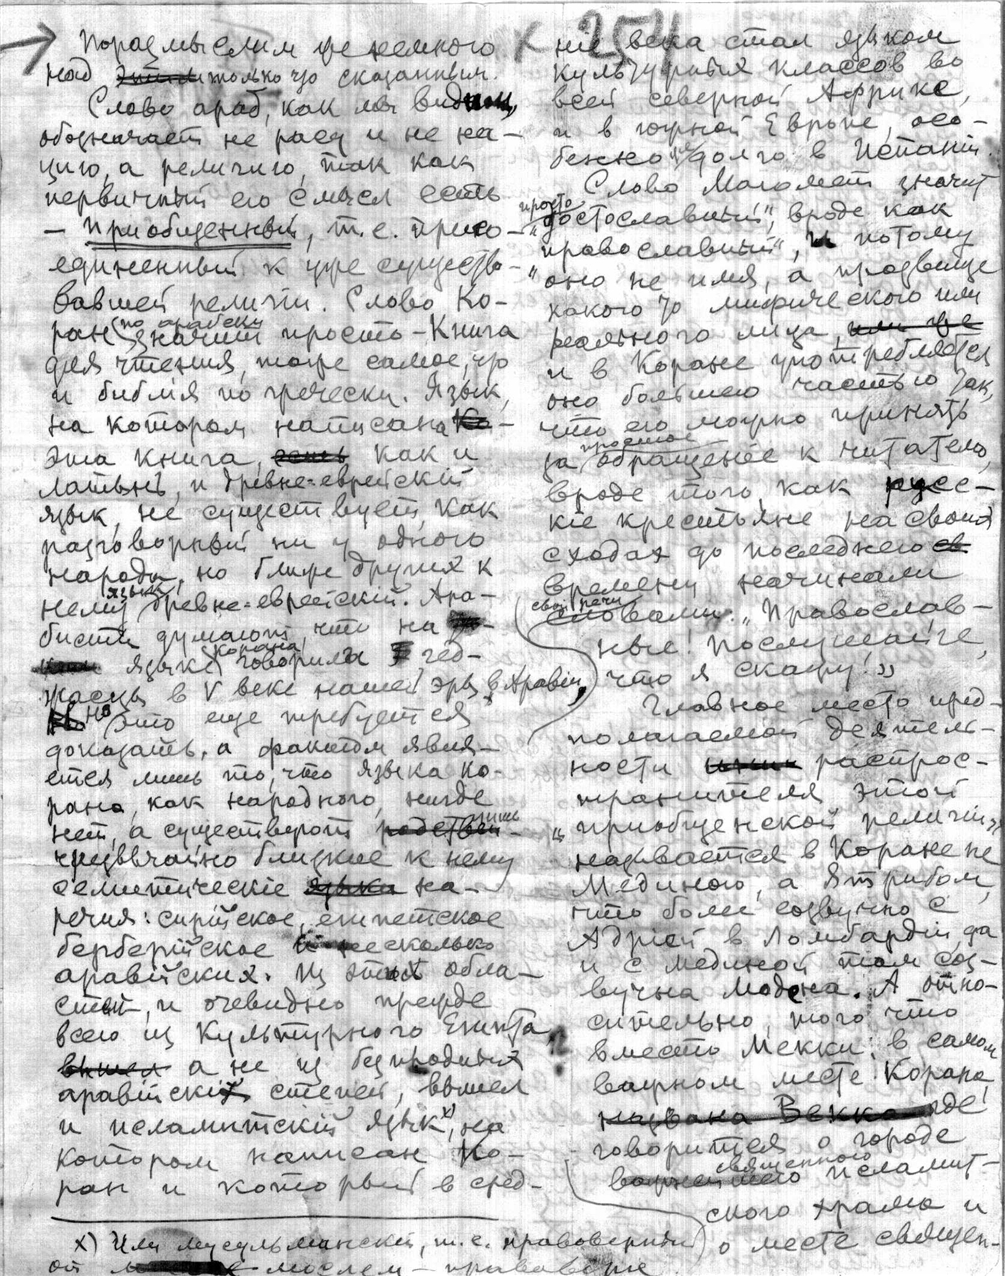 254
Поразмыслим уже немного
над только что сказанным.
Слово араб, как мы видим,
обозначает не расу и не на-
цию, а религию, так как
первичный его смысл есть
— приобщенный, т.е. присо-
единенный к уже существо-
вавшей религии. Слово Ко-
ран по арабски значит просто – Книга
для чтения, тоже самое, что
и библия по гречески. Язык,
на котором написана
эта книга, как и
латынь, и древне-еврейскій
язык, не существует, как
разговорный ни у одного
народа, но ближе других к
нему язык древне-еврейскій. Ара-
бисты думают, что на
языке Корана говорила
в V веке нашей эры, в Аравіи,
но это еще требуется
доказать, а фактом явля-
ется лишь то, что языка Ко-
рана, как народного, нигде
нет, а существуют лишь
чрезвычайно близкие к нему
семитическіе на-
речия: сирійское, египетское
берберійское и несколько
аравійских. Из этих обла-
стей, и очевидно прежде
всего из культурного Египта
а не из безплодных
аравійских степей, вышел
и исламитскій язык x), на
котором написан Ко-
ран и который в сред-
x) Или мусульманскій, т.е. правоверный
от мослем – правоверие.
ніе века стал языком
культурных классов во
всей северной Африке,
и в южной Европе, осо-
бенно долго в Испаніи.
Слово Магомет значит
просто „достославный", вроде как
„православный", и потому
оно не имя, а прозвище
какого то мифического или
реального лица,
и в Коране употребляется
оно большею частью так,
что его можно принять
за простое обращение к читателю,
вроде того, как рус-
кіе крестьяне на своих
сходах до последнего
времени начинали
свои речи словами: „Православ-
ные! Послушайте,
что я скажу!"
Главное место пред-
полагаемой деятель-
ности распрос-
транителя этой
„приобщенской религіи"
называется в Коране не
Мединою, а Ятрибом,
что более созвучно с
Адріей в Ломбардіи, да
и с Мединой там соз-
вучна Модена. А отно-
сительно того, что
вместо Мекки: в самом
важном месте Корана,
где
говорится о городе
священного исламит-
ского храма и
о месте священ-